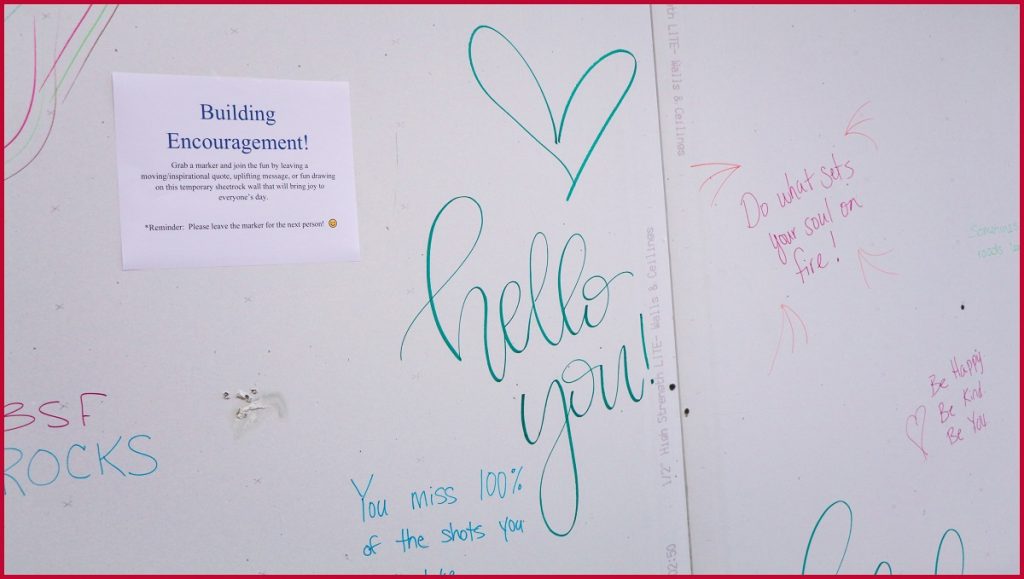 Building
Encouragement!
Grab a marker and join the fun by leaving a
moving/inspirational quote, uplifting message, or fun drawing
on this temporary sheetrock wall that will bring joy to
everyone's day.
*Reminder: Please leave the marker for the next person! 😊
hello
you!
BSF
ROCKS
You miss 100%
of the shots you
Do what sets
your soul on
fire!
Be Happy
Be Kind
Be You
roads
LITE- Walls & Ceilings
1/2" High Strength LITE- Walls & Ceilings
02:50